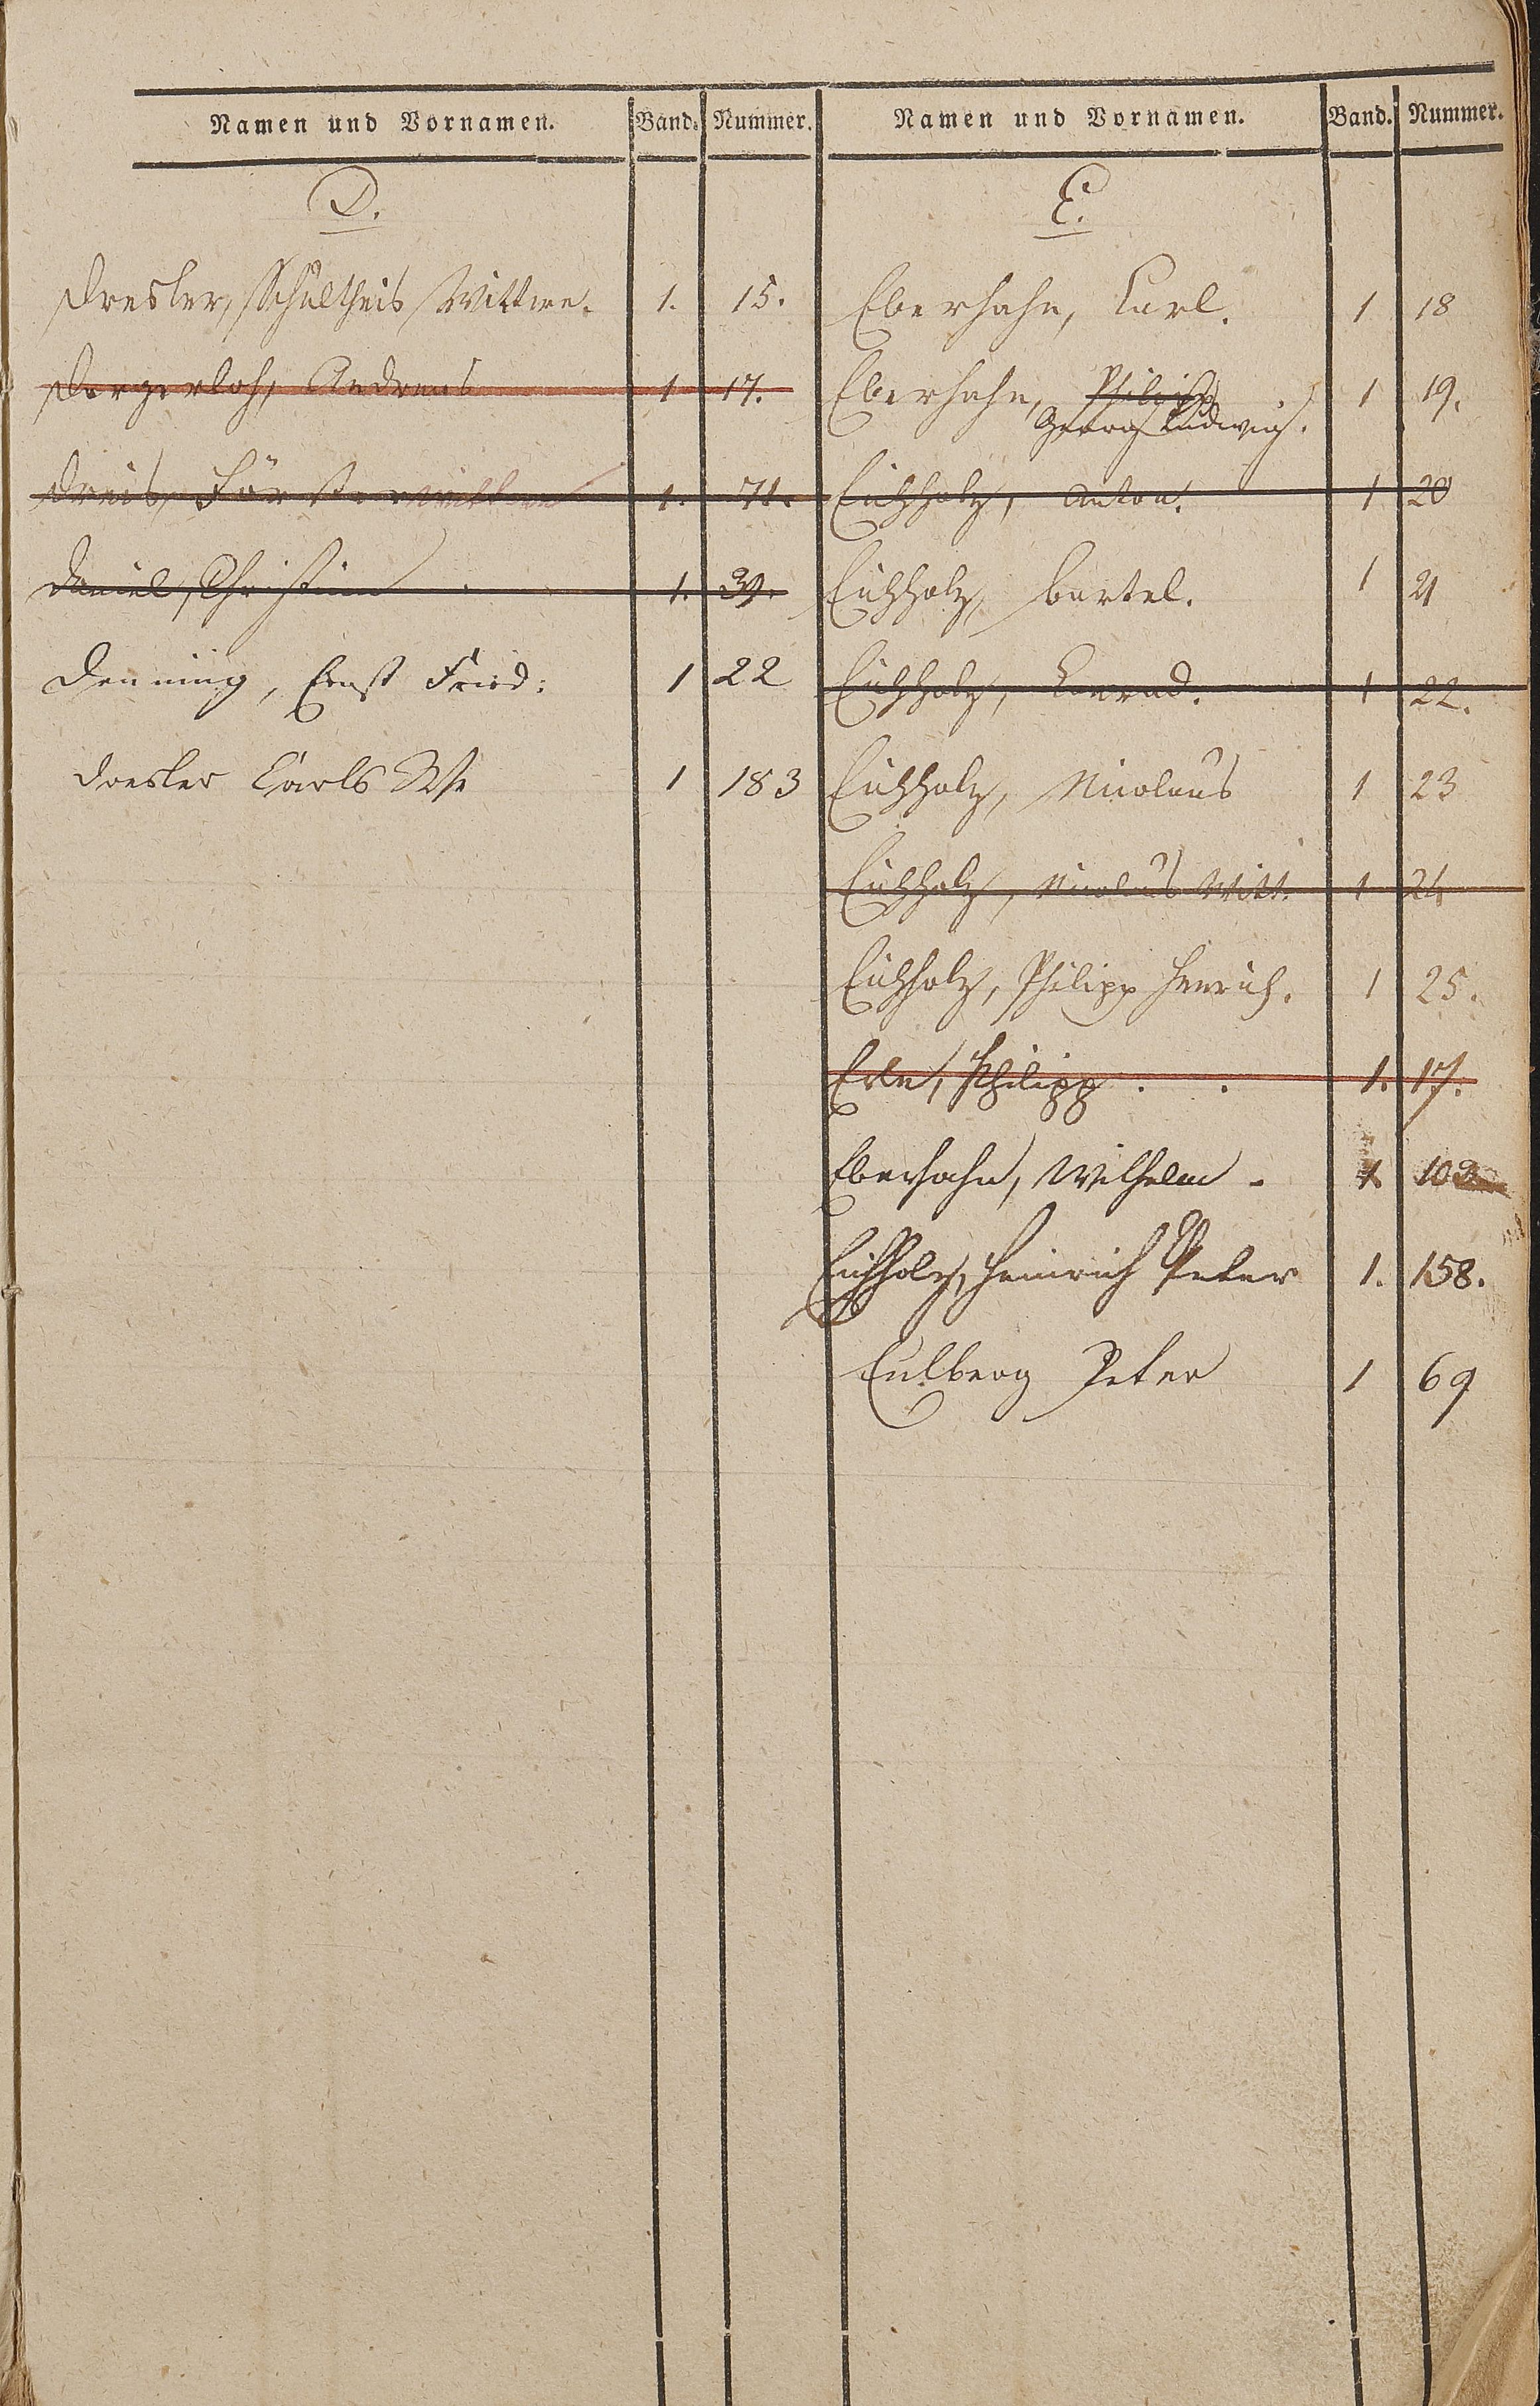 Namen und Vornamen. Band. Nummer.
D.
Dresler, Schultheis Wittwe. 1. 15.
Dorgerloh, Andreas 1 17.
Dreis, Försterwittwe 1. 71.
Daniel, Christian . 1. 39.
Denning, Ernst Fried: 1 22
Dresler Carls We 1 183
Namen und Vornamen. Band. Nummer.
E.
Eberhahn, Carl. 1 18
Eberhahn, Philipp 1 19.
Georg Ludwig.
Eichholz, Anton. 1 20
Eichholz, Bartel. 1 21
Eichholz, Conrad. 1 22.
Eichholz, Nicolaus 1 23
Eichholz, Nicolaus Witt. 1 24
Eichholz, Philipp Henrich. 1 25.
Erle, Philipp . . 1. 17.
Eberhahn, Wilhelm - 1. 103
Eichholz, Heinrich Peter 1. 158.
Eulberg Peter 1 69